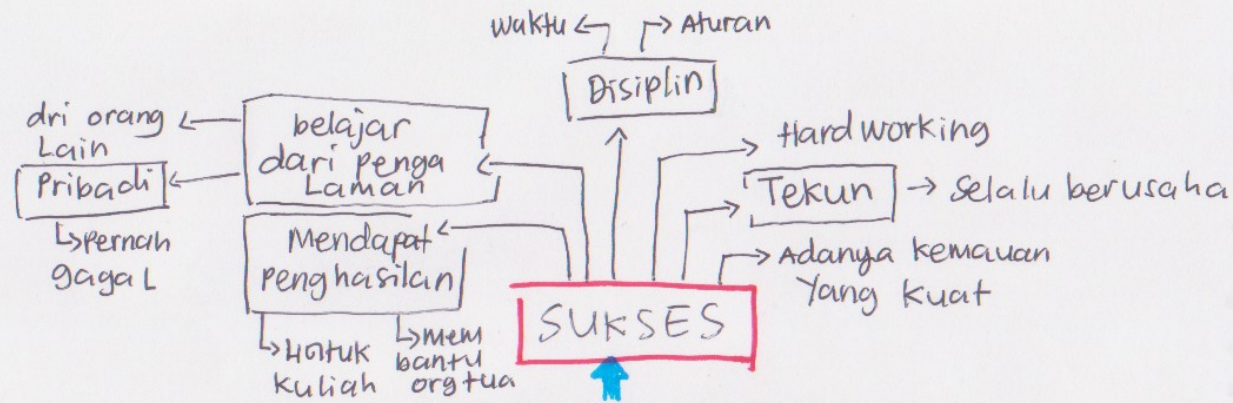 waktu
Aturan
Disiplin
dri orang
Lain
Pribadi
Pernah
gagal
belajar
dari penga
Laman
Mendapat
penghasilan
Untuk
kuliah
mem
bantu
orgtua
Hardworking
Tekun
Selalu berusaha
Adanya kemauan
Yang kuat
SUKSES